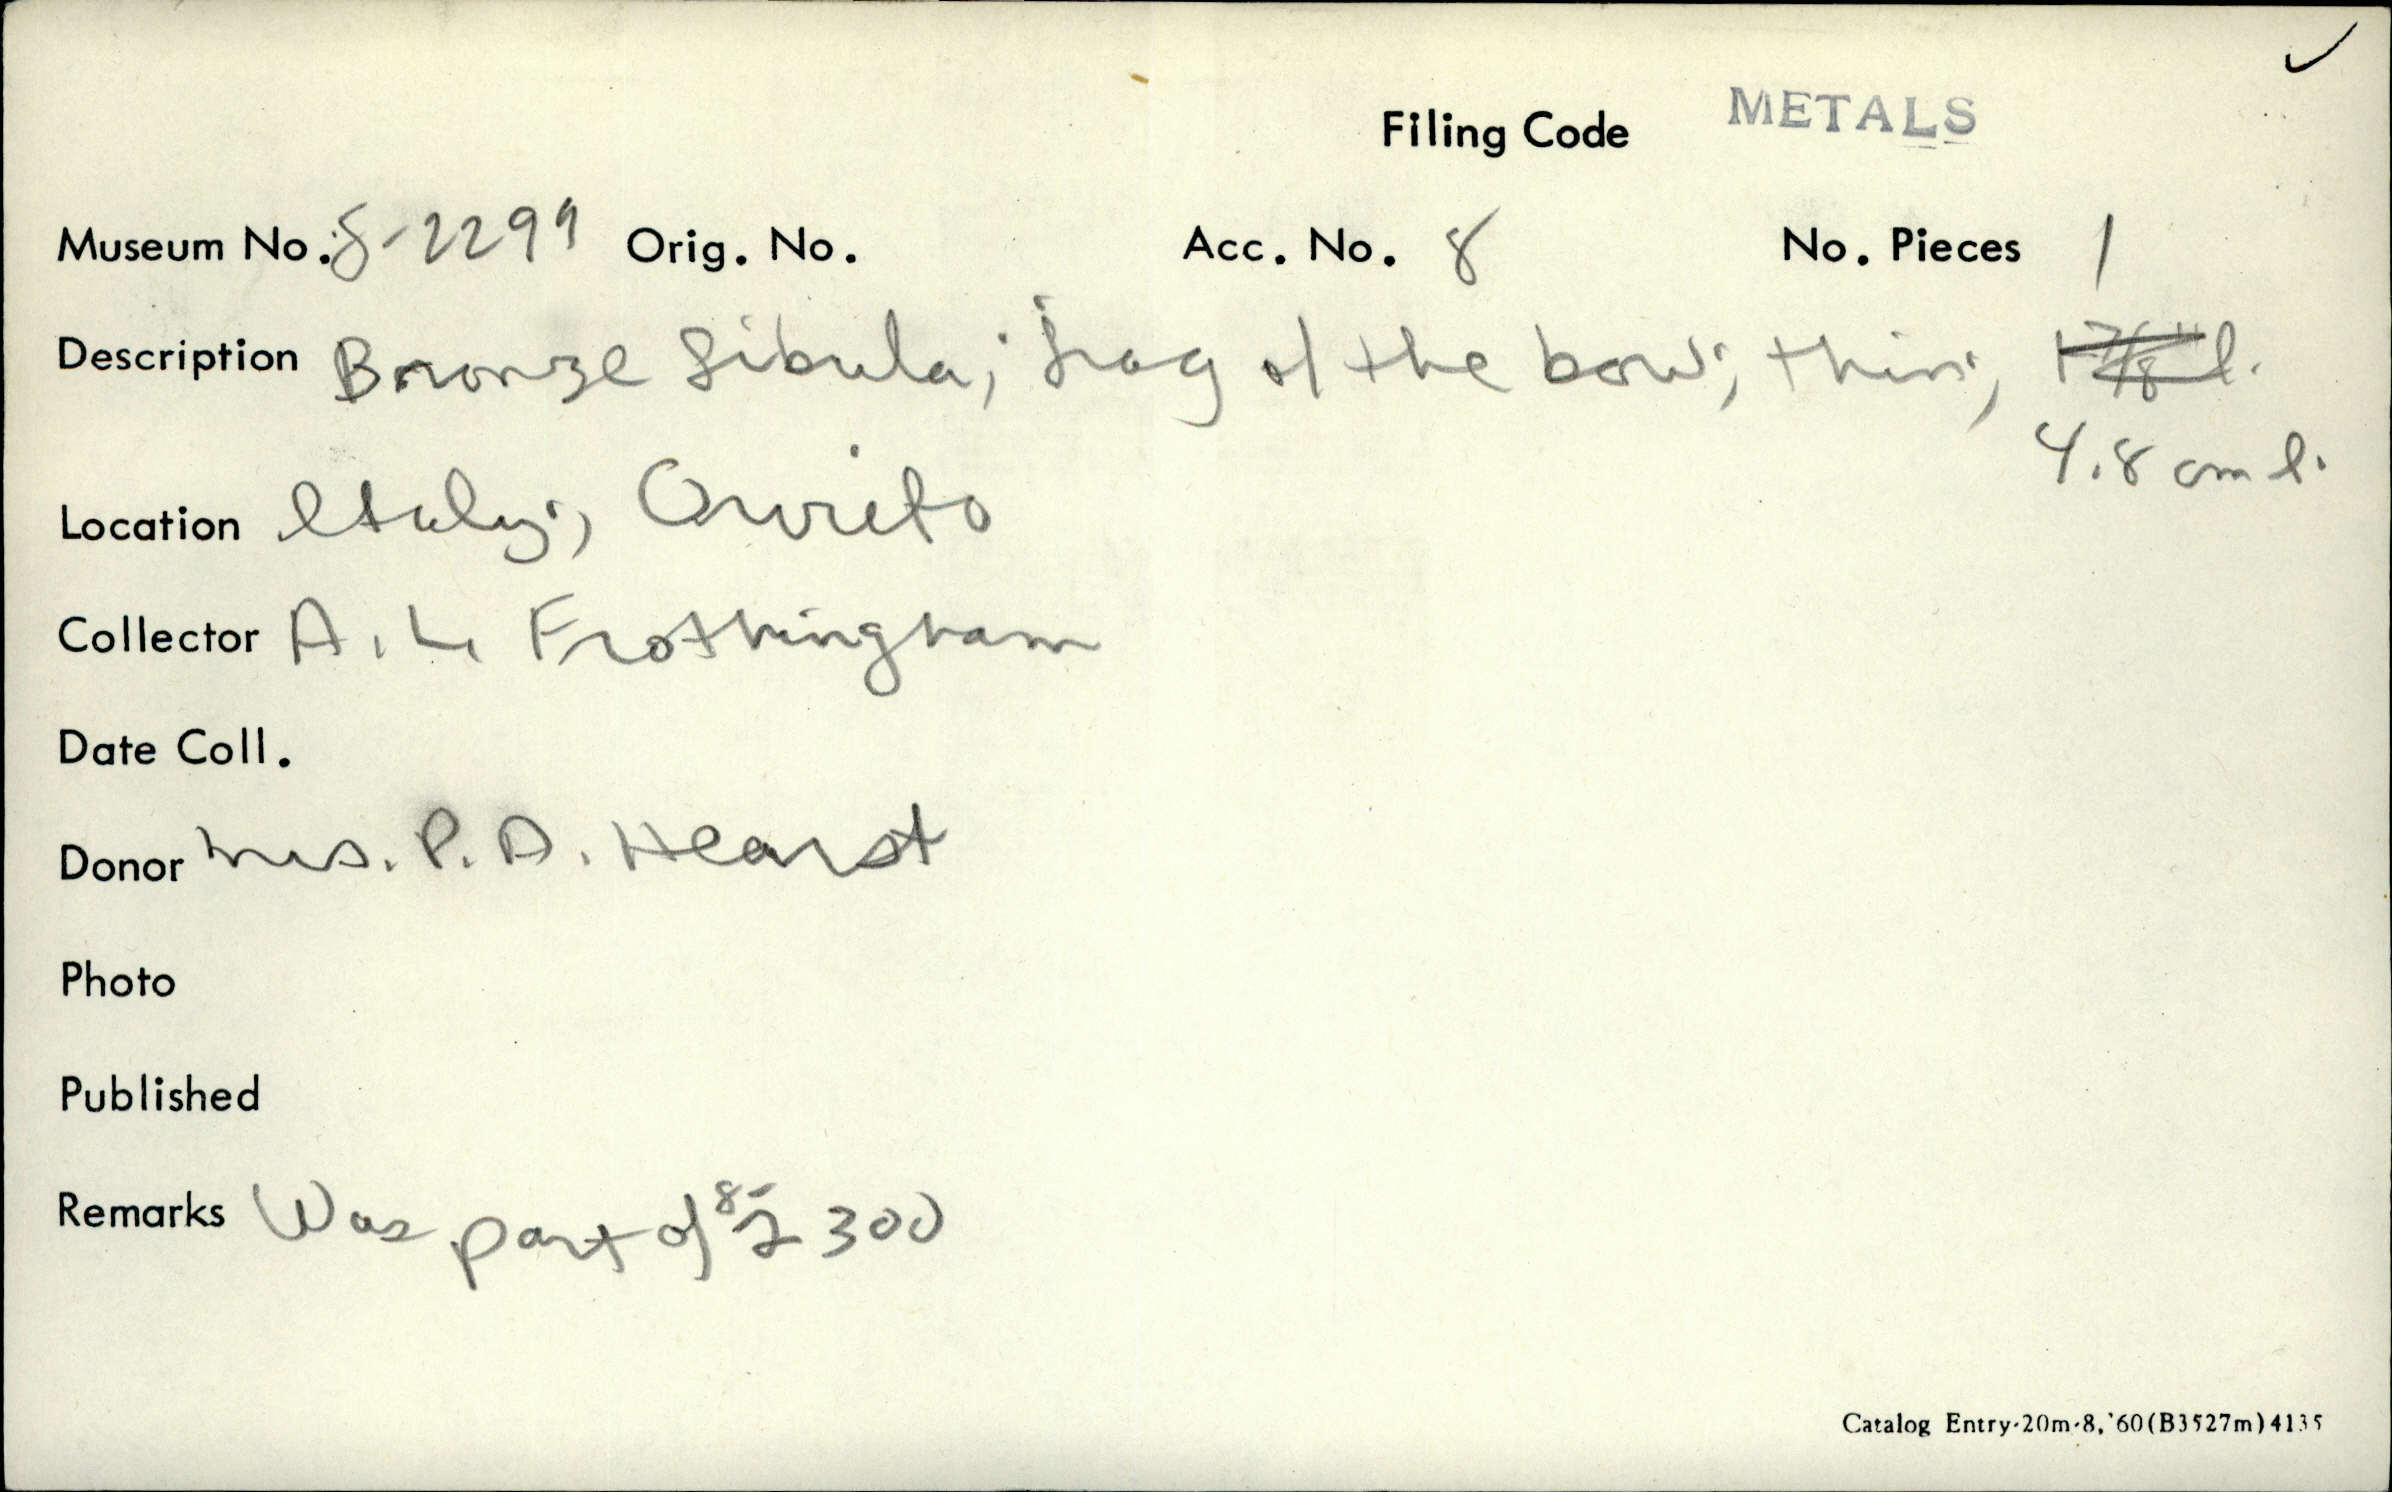 ✓
Filing Code METALS
Museum No. 8-2299 Orig. No. Acc. No. 8 No. Pieces 1
Description Bronze fibula; frag of the bow; thin; 1 7/8" l.
4.8 cm l.
Location Italy; Orvieto
Collector A. L. Frothingham
Date Coll.
Donor Mrs. P. A. Hearst
Photo
Published
Remarks Was part of 8-2300
Catalog Entry-20m-8,'60(B3527m)4135